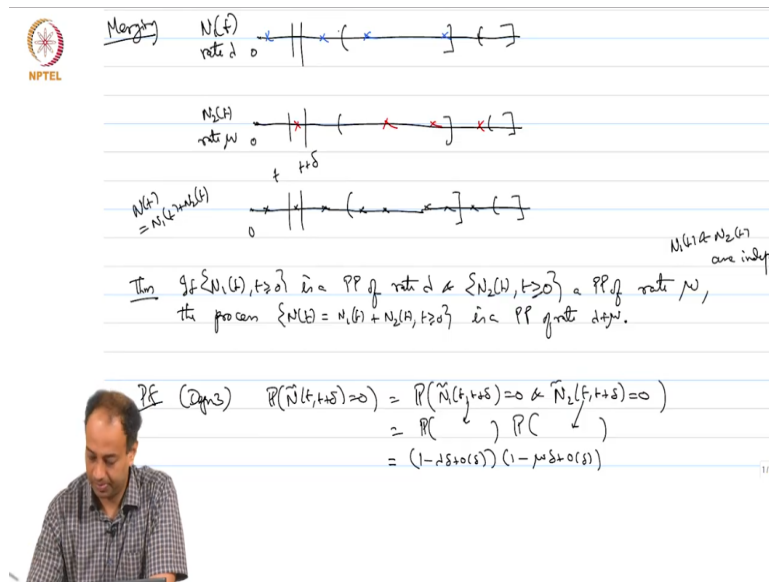 Merging N(t)
rate λ 0
NPTEL
N2(t)
rate μ 0
t t+δ
N(t)
= N1(t)+N2(t)
0
N1(t) & N2(t)
are indep
Thm If {N1(t), t≥0} is a PP of rate λ & {N2(t), t≥0} a PP of rate μ,
the process {N(t) = N1(t) + N2(t), t≥0} is a PP of rate λ+μ.
Pf (Defn3) P(Ñ(t,t+δ)=0) = P(Ñ1(t,t+δ)=0 & Ñ2(t,t+δ)=0)
= P( ) P( )
= (1-λδ+o(δ)) (1-μδ+o(δ))